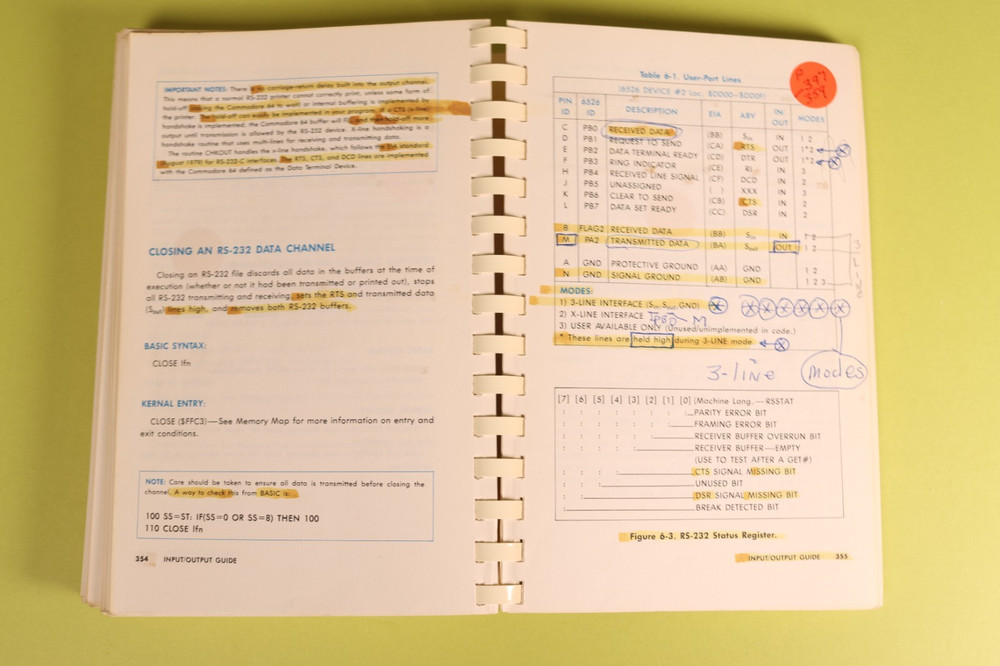 IMPORTANT NOTES: There is no carriage-return delay built into the output channel.
This means that a normal RS-232 printer cannot correctly print, unless some form of
hold-off (asking the Commodore 64 to wait) or internal buffering is implemented by
the printer. The hold-off can easily be implemented in your program. If a CTS (x-line)
handshake is implemented, the Commodore 64 buffer will fill and then hold-off more
output until transmission is allowed by the RS-232 device. X-line handshaking is a
handshake routine that uses multi-lines for receiving and transmitting data.
The routine CHKOUT handles the x-line handshake, which follows the EIA standard
(August 1979) for RS-232-C interfaces. The RTS, CTS, and DCD lines are implemented
with the Commodore 64 defined as the Data Terminal Device.
CLOSING AN RS-232 DATA CHANNEL
Closing an RS-232 file discards all data in the buffers at the time of
execution (whether or not it had been transmitted or printed out), stops
all RS-232 transmitting and receiving, sets the RTS and transmitted data
(Sout) lines high, and removes both RS-232 buffers.
BASIC SYNTAX:
CLOSE lfn
KERNAL ENTRY:
CLOSE ($FFC3)—See Memory Map for more information on entry and
exit conditions.
NOTE: Care should be taken to ensure all data is transmitted before closing the
channel. A way to check this from BASIC is:
100 SS=ST: IF(SS=0 OR SS=8) THEN 100
110 CLOSE lfn
354 INPUT/OUTPUT GUIDE
P
347
359
Table 6-1. User-Port Lines
(6526 DEVICE #2 Loc. $DD00-$DD0F)
PIN ID 6526 ID DESCRIPTION EIA ABV IN OUT MODES
C PB0 RECEIVED DATA (BB) Sin IN 1 2
D PB1 REQUEST TO SEND (CA) RTS OUT 1*2
E PB2 DATA TERMINAL READY (CD) DTR OUT 1*2
F PB3 RING INDICATOR (CE) RI IN 3
H PB4 RECEIVED LINE SIGNAL (CF) DCD IN 2
J PB5 UNASSIGNED ( ) XXX IN 3
K PB6 CLEAR TO SEND (CB) CTS IN 2
L PB7 DATA SET READY (CC) DSR IN 2
B FLAG2 RECEIVED DATA (BB) Sin IN 1 2
M PA2 TRANSMITTED DATA (BA) Sout OUT 1 2
A GND PROTECTIVE GROUND (AA) GND 1 2
N GND SIGNAL GROUND (AB) GND 1 2 3
3 LINE
MODES:
1) 3-LINE INTERFACE (Sin, Sout, GND)
2) X-LINE INTERFACE
3) USER AVAILABLE ONLY (Unused/unimplemented in code.)
* These lines are held high during 3-LINE mode
3-line modes
[7] [6] [5] [4] [3] [2] [1] [0] (Machine Lang.—RSSTAT
PARITY ERROR BIT
FRAMING ERROR BIT
RECEIVER BUFFER OVERRUN BIT
RECEIVER BUFFER—EMPTY
(USE TO TEST AFTER A GET#)
CTS SIGNAL MISSING BIT
UNUSED BIT
DSR SIGNAL MISSING BIT
BREAK DETECTED BIT
Figure 6-3. RS-232 Status Register.
INPUT/OUTPUT GUIDE 355